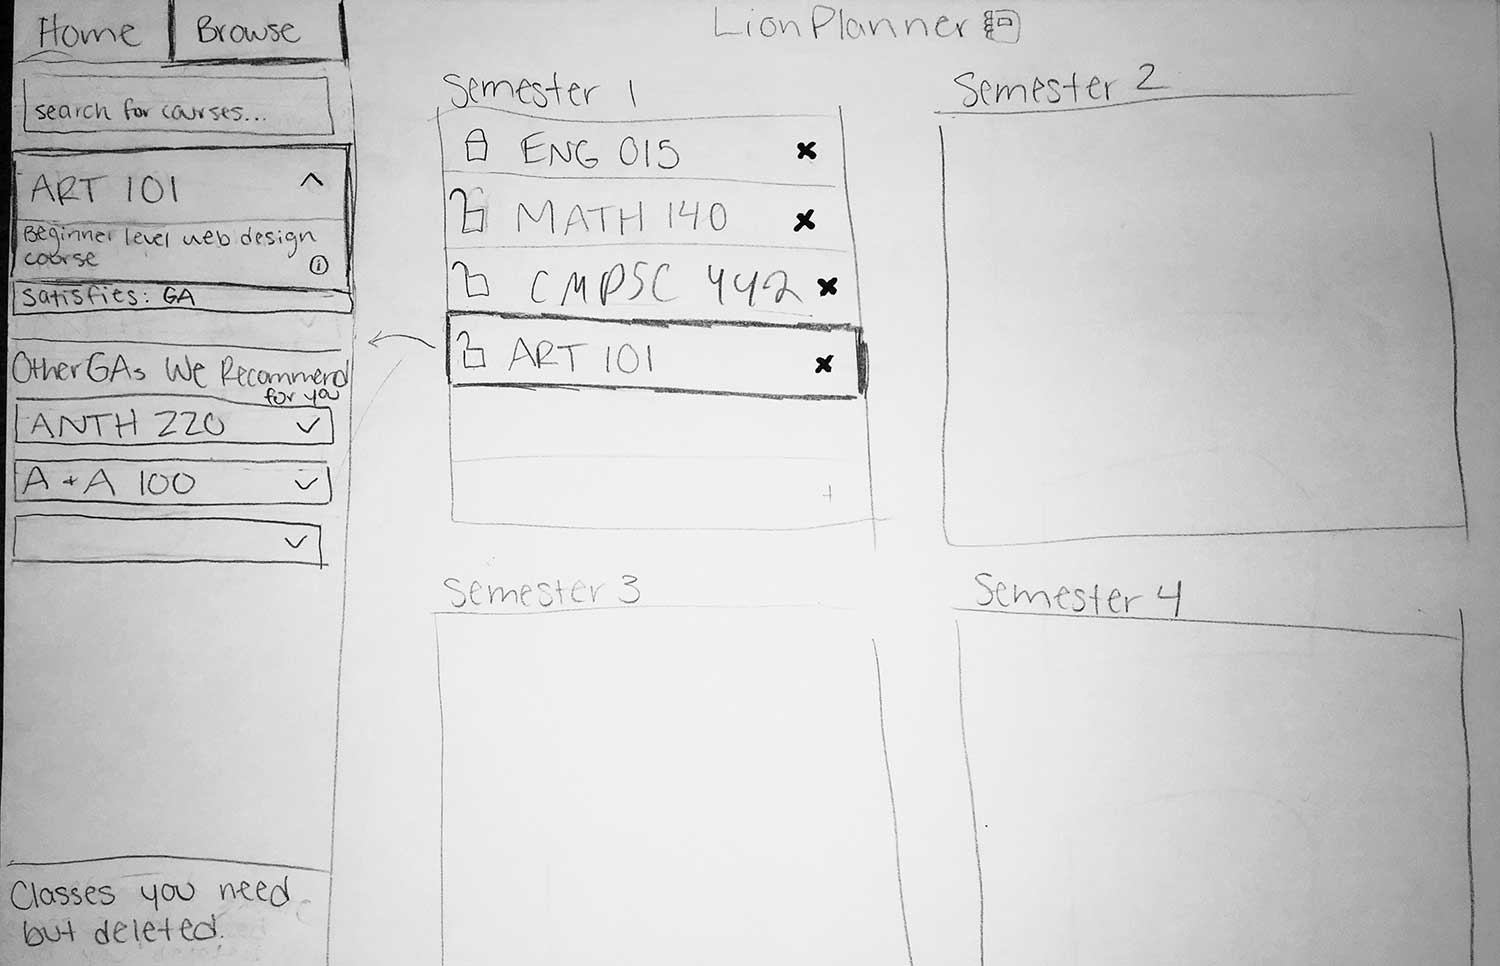 Home
Browse
LionPlanner
search for courses...
ART 101
Beginner level web design
course
i
Satisfies: GA
Other GAs We Recommend
for you
ANTH 220
A + A 100
Classes you need
but deleted.
Semester 1
ENG 015
MATH 140
CMPSC 442
ART 101
+
Semester 2
Semester 3
Semester 4